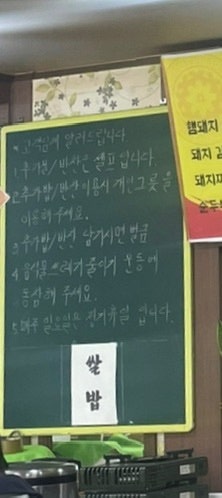 * 고객님께 알려드립니다
1 추가밥/반찬은 셀프입니다.
2 추가밥/반찬 이용시 개인그릇을
이용해주세요.
3 추가밥/반찬 남기시면 벌금
4 음식물쓰레기줄이기 운동에
동참해 주세요.
5 매주 일요일은 정기휴일 입니다.
쌀
밥
햄돼지
돼지
돼지
순두부